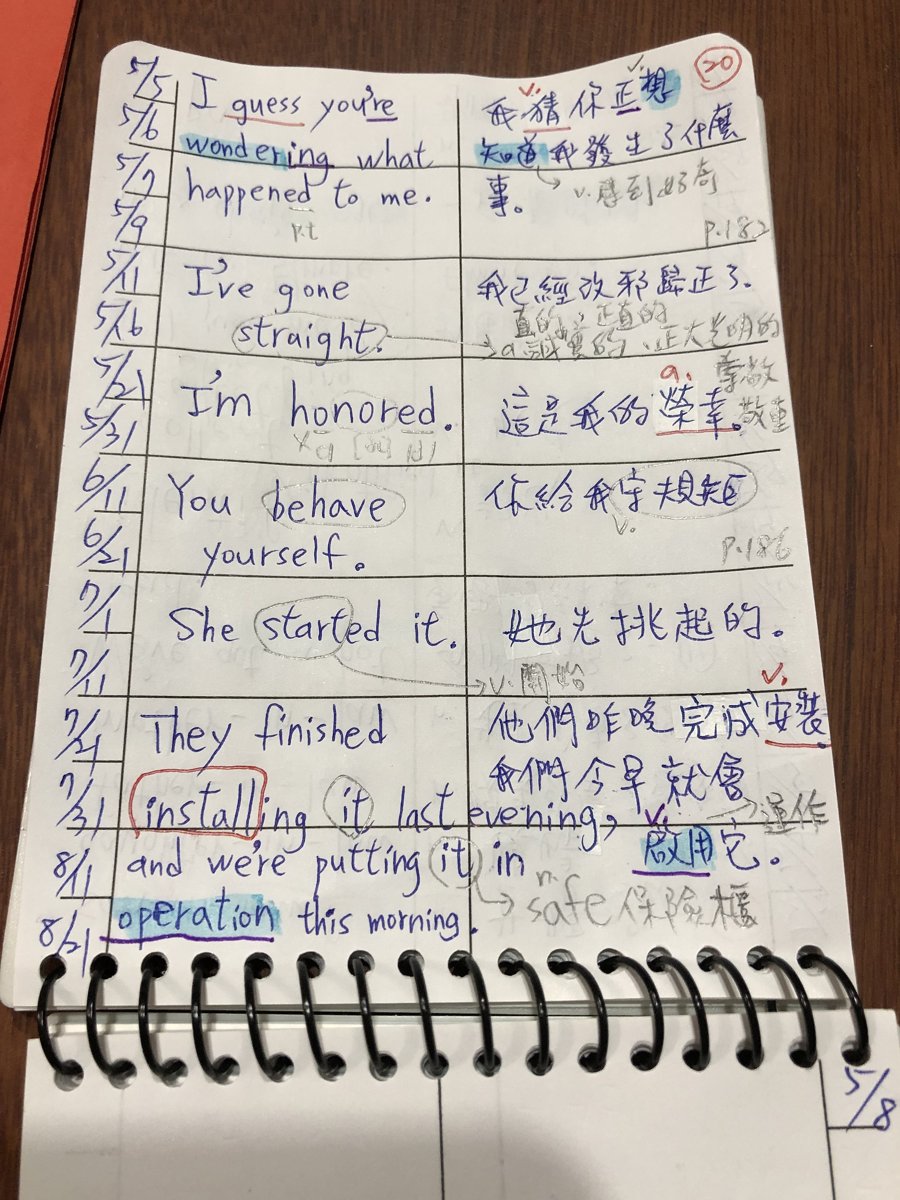 20
5/5
I guess you're
我猜你正想
5/6
wondering what
知道我發生了什麼
5/7
happened to me.
事。
v.感到好奇
5/9
pt
p.182
5/11
I've gone
我已經改邪歸正了。
5/16
straight.
直的、正直的
a.誠實的、正大光明的
5/21
I'm honored.
這是我的榮幸。
a.
敬重
5/31
6/11
You behave
你給我守規矩
v.
6/21
yourself.
p.186
7/1
She started it.
她先挑起的。
7/11
v.開始
v.
7/21
They finished
他們昨晚完成安裝.
我們今早就會
7/31
installing it last evening,
運作
v.
8/11
and we're putting it in
啟用它。
n.c
safe 保險櫃
8/21
operation this morning.
5/8